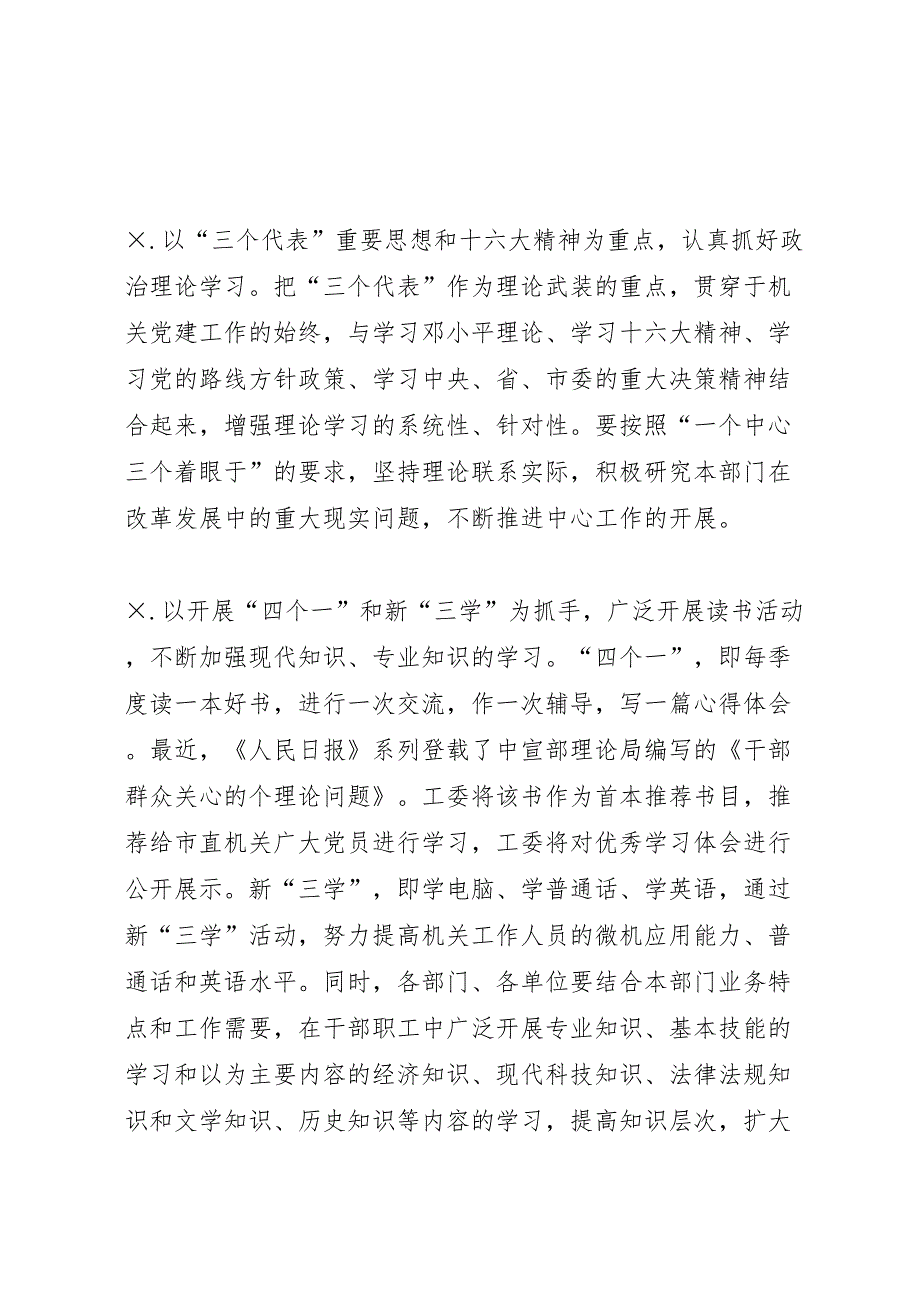 ×.以“三个代表”重要思想和十六大精神为重点，认真抓好政
治理论学习。把“三个代表”作为理论武装的重点，贯穿于机
关党建工作的始终，与学习邓小平理论、学习十六大精神、学
习党的路线方针政策、学习中央、省、市委的重大决策精神结
合起来，增强理论学习的系统性、针对性。要按照“一个中心
三个着眼于”的要求，坚持理论联系实际，积极研究本部门在
改革发展中的重大现实问题，不断推进中心工作的开展。
×.以开展“四个一”和新“三学”为抓手，广泛开展读书活动
，不断加强现代知识、专业知识的学习。“四个一”，即每季
度读一本好书，进行一次交流，作一次辅导，写一篇心得体会
。最近，《人民日报》系列登载了中宣部理论局编写的《干部
群众关心的个理论问题》。工委将该书作为首本推荐书目，推
荐给市直机关广大党员进行学习，工委将对优秀学习体会进行
公开展示。新“三学”，即学电脑、学普通话、学英语，通过
新“三学”活动，努力提高机关工作人员的微机应用能力、普
通话和英语水平。同时，各部门、各单位要结合本部门业务特
点和工作需要，在干部职工中广泛开展专业知识、基本技能的
学习和以为主要内容的经济知识、现代科技知识、法律法规知
识和文学知识、历史知识等内容的学习，提高知识层次，扩大